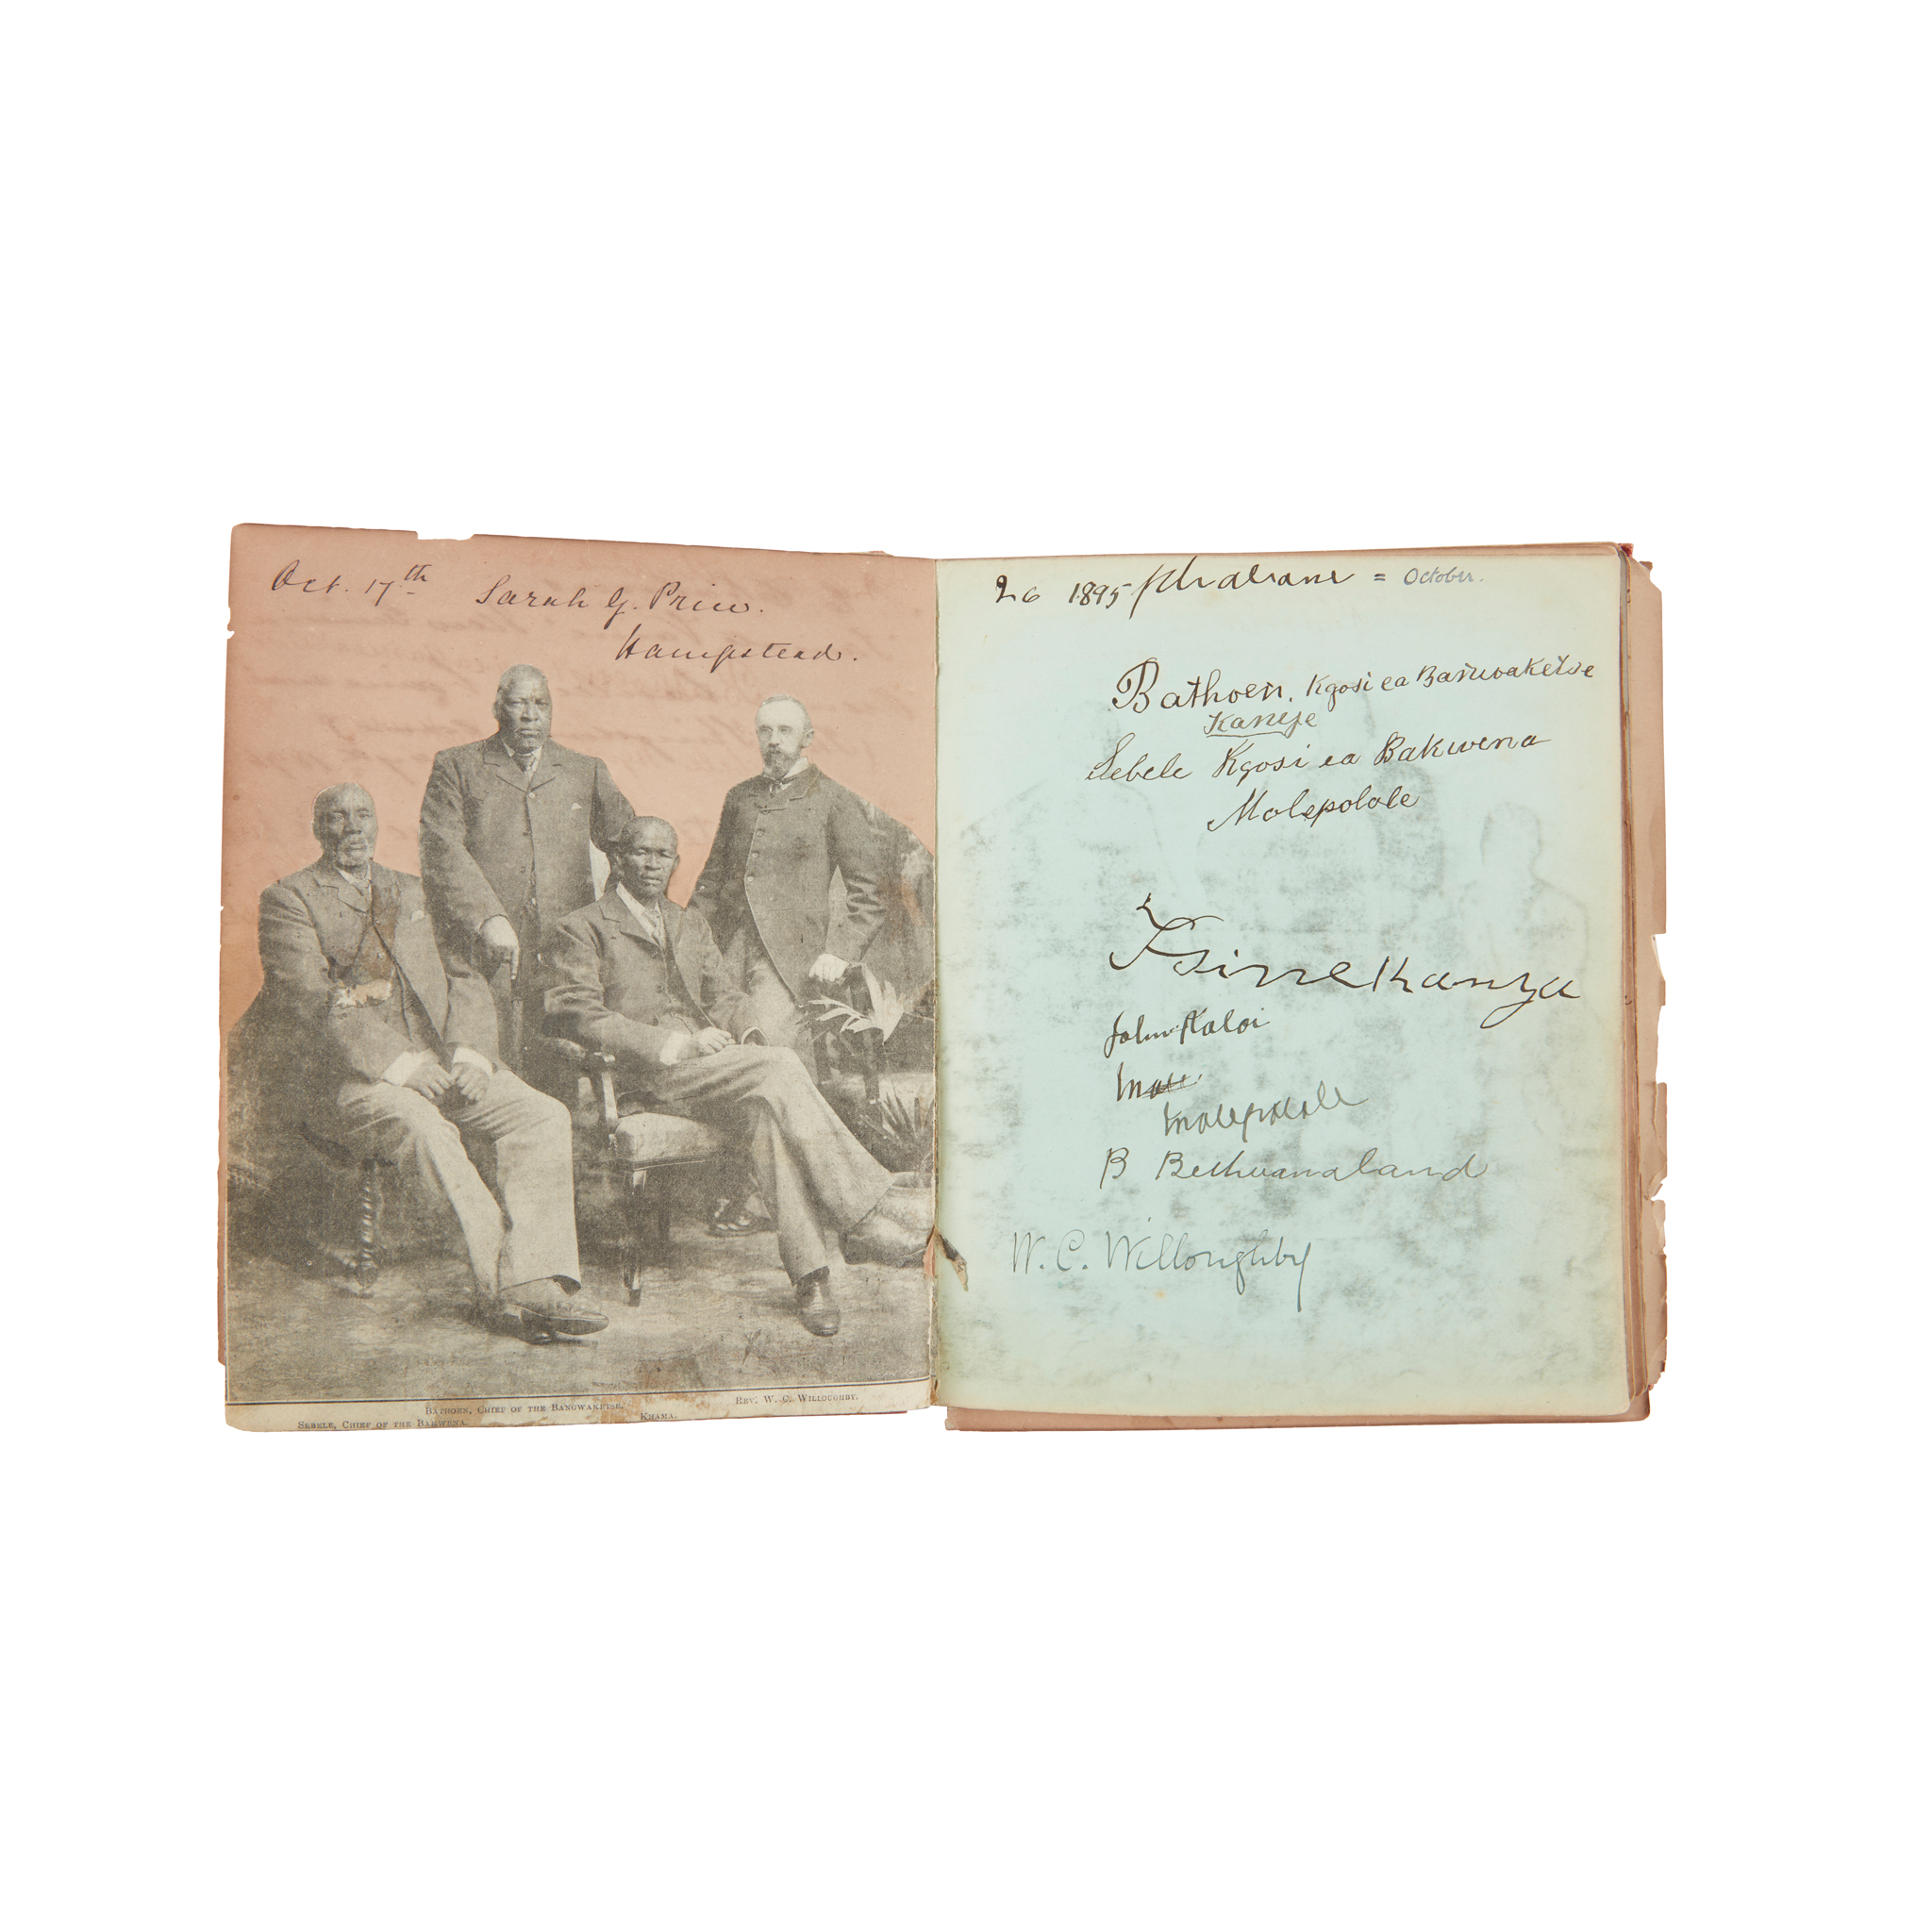 Oct. 17th Sarah G. Price.
Hampstead.
BATHOEN, CHIEF OF THE BANGWAKETSE.
REV. W. C. WILLOUGHBY.
SEBELE, CHIEF OF THE BAKWENA.
KHAMA.
26 1895 Phalane = October.
Bathoen. Kgosi ea Bañwaketse
Kanye
Sebele Kgosi ea Bakwena
Molepolole
John Kaloi
Molepolole
B Bechuanaland
W. C. Willoughby